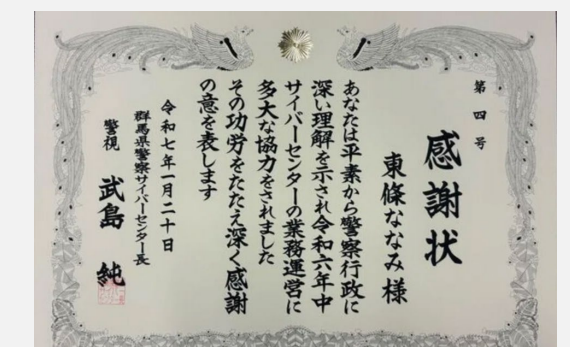 第四号
感謝状
東條ななみ様
あなたは平素から警察行政に
深い理解を示され令和六年中
サイバーセンターの業務運営に
多大な協力をされました
その功労をたたえ深く感謝
の意を表します
令和七年一月二十日
群馬県警察サイバーセンター長
警視 武島 純